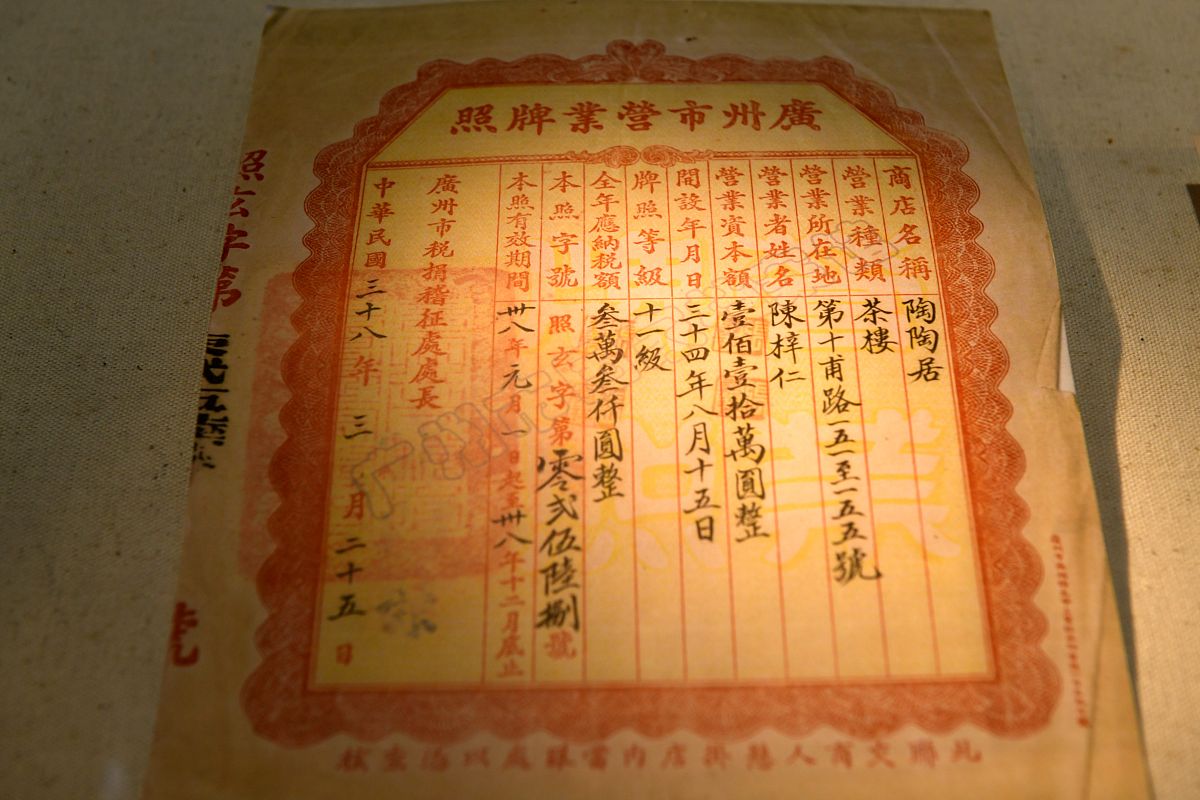 廣州市營業牌照
商店名稱 陶陶居
營業種類 茶樓
營業所在地 第十甫路一五一至一五五號
營業者姓名 陳梓仁
營業資本額 壹佰壹拾萬圓整
開設年月日 三十四年八月十五日
牌照等級 十一級
全年應納稅額 叁萬叁仟圓整
本照字號 照玄字第零弍伍陸捌號
本照有效期間 卅八年元月一日起至卅八年十二月底止
廣州市稅捐稽征處處長
中華民國三十八年三月二十五日
照玄字第
號
此聯交商人懸掛店內當眼處以憑查核